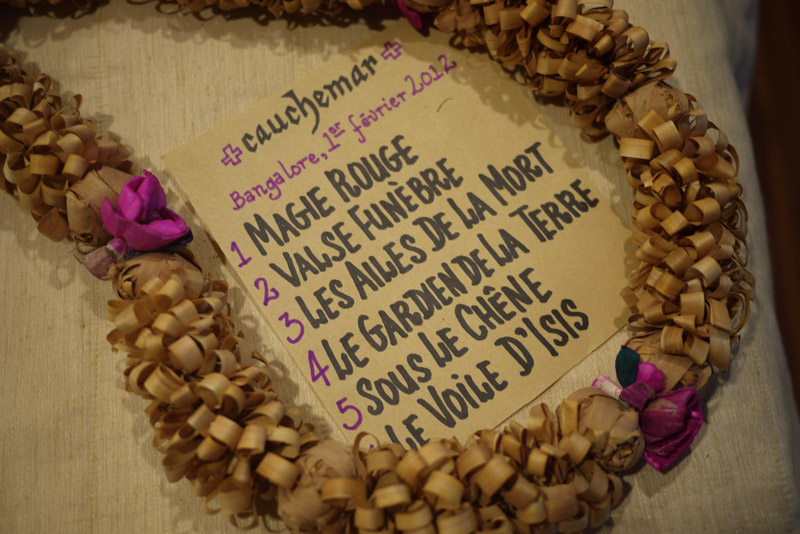 cauchemar
Bangalore, 1er février 2012
1 MAGIE ROUGE
2 VALSE FUNÈBRE
3 LES AILES DE LA MORT
4 LE GARDIEN DE LA TERRE
5 SOUS LE CHÊNE
LE VOILE D'ISIS